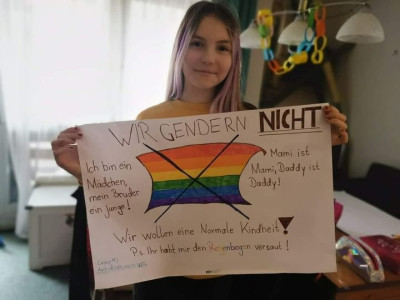 WIR GENDERN NICHT
Ich bin ein
Mädchen,
mein Bruder
ein junge!
Mami ist
Mami, Daddy ist
Daddy!
Wir wollen eine Normale Kindheit!
P.s. Ihr habt mir den Regenbogen versaut!